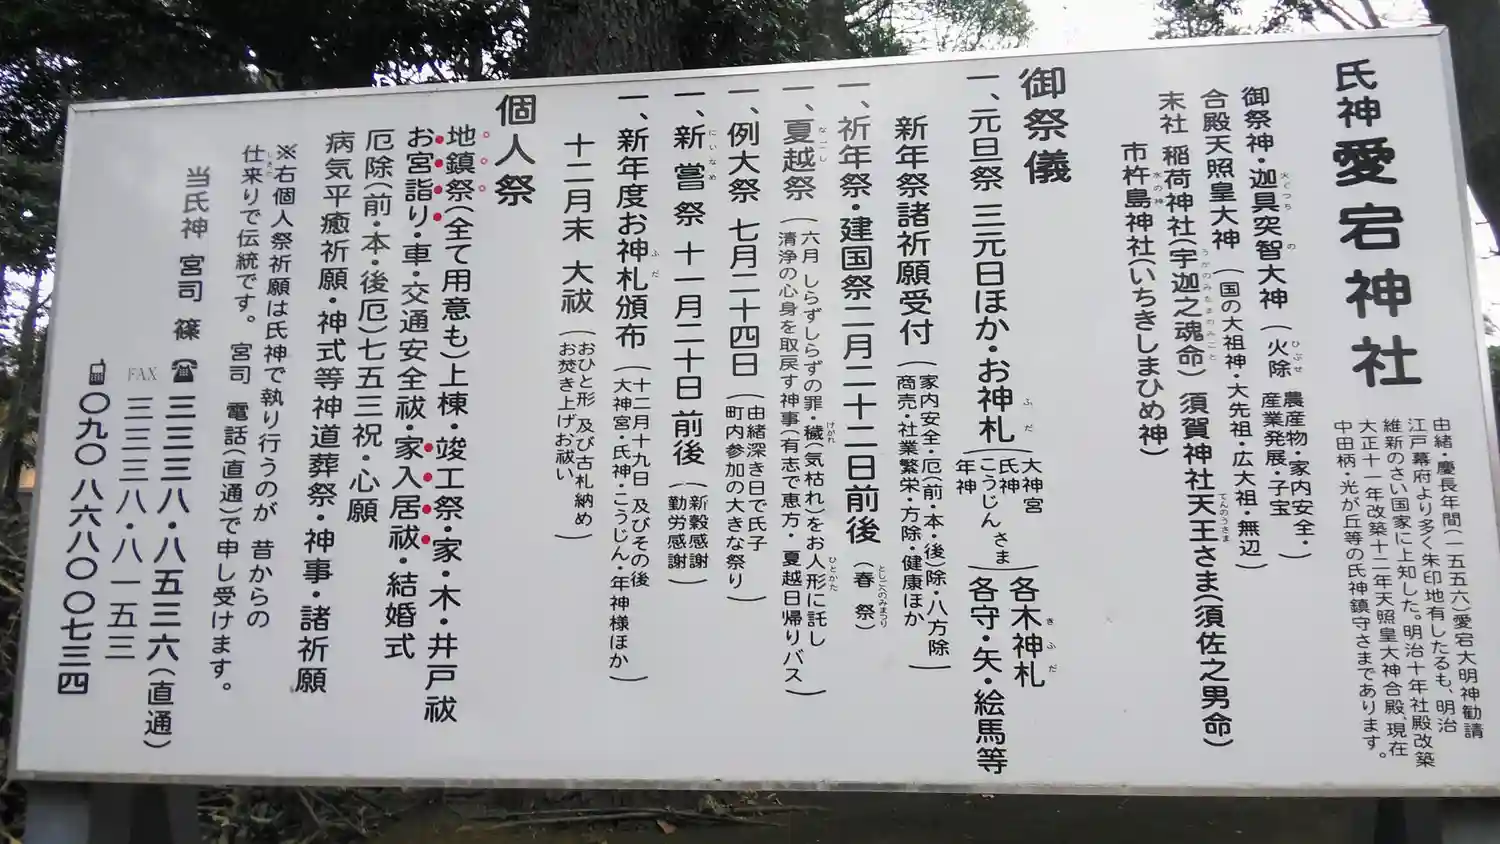 氏神 愛宕神社
由緒・慶長年間(一五五六)愛宕大明神勧請
江戸幕府より多く朱印地有したるも、明治
維新のさい国家に上知した。明治十年社殿改築
大正十一年改築十二年天照皇大神合殿、現在
中田柄・光が丘等の氏神鎮守さまであります。
御祭神・迦具突智大神(火除 農産物・家内安全・産業発展・子宝)
合殿天照皇大神(国の大祖神・大先祖・広大祖・無辺)
末社 稲荷神社(宇迦之魂命)須賀神社天王さま(須佐之男命)
市杵島神社(いちきしまひめ神)
御祭儀
一、元旦祭 三元日ほか・お神札(大神宮 氏神 こうじんさま 年神)各木神札 各守・矢・絵馬等
新年祭諸祈願受付(家内安全・厄(前・本・後)除・八方除 商売・社業繁栄・方除・健康ほか)
一、祈年祭・建国祭二月二十二日前後(春祭)
一、夏越祭(六月 しらずしらずの罪・穢(気枯れ)をお人形に託し 清浄の心身を取戻す神事(有志で恵方・夏越日帰りバス)
一、例大祭 七月二十四日(由緒深き日で氏子 町内参加の大きな祭り)
一、新嘗祭 十一月二十日前後(新穀感謝 勤労感謝)
一、新年度お神札頒布(十二月十九日 及びその後 大神宮・氏神・こうじん・年神様ほか)
十二月末 大祓(おひと形 及び古札納め お焚き上げお祓い)
個人祭
地鎮祭(全て用意も)上棟・竣工祭・家・木・井戸祓
お宮詣り・車・交通安全祓・家入居祓・結婚式
厄除(前・本・後厄)七五三祝・心願
病気平癒祈願・神式等神道葬祭・神事・諸祈願
※右個人祭祈願は氏神で執り行うのが 昔からの
仕来りで伝統です。 宮司 電話(直通)で申し受けます。
当氏神 宮司 篠 ☎ 三三三八・八五三六(直通)
FAX 三三三八・八一五三
〇九〇 八六八〇 〇七三四